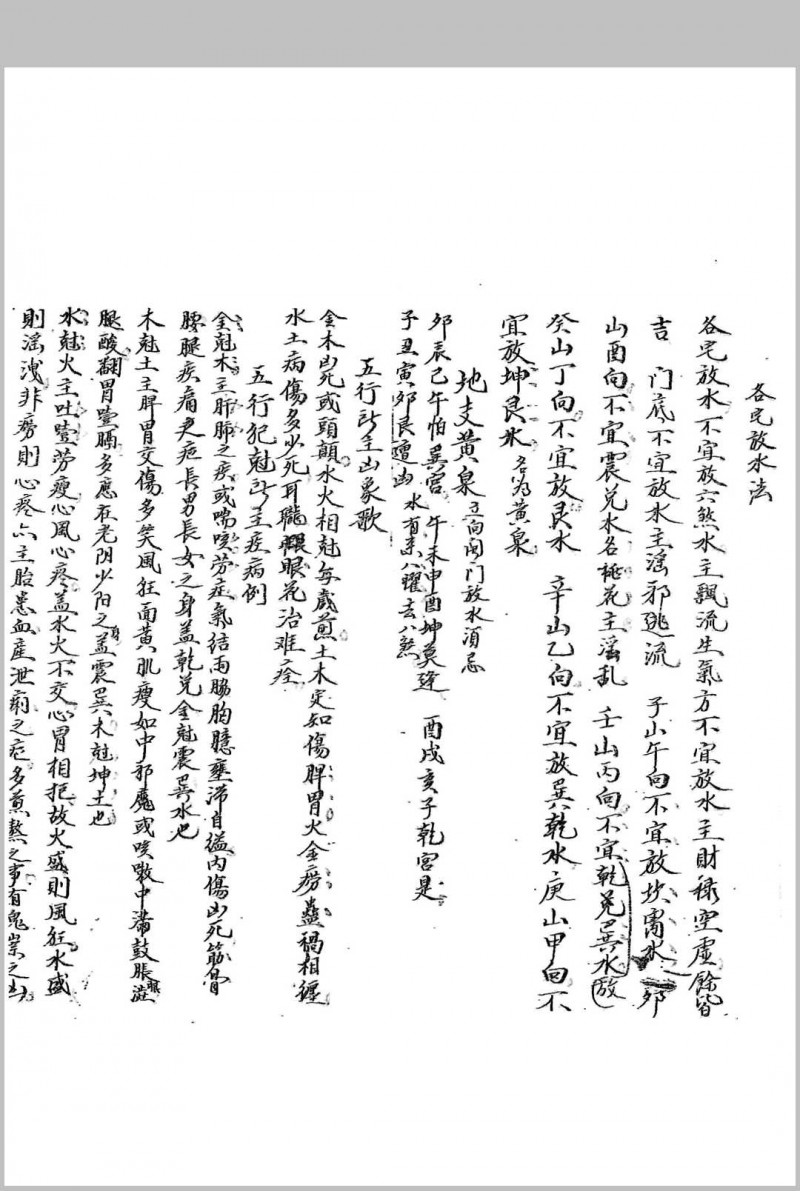 各宅放水法
各宅放水不宜放六煞水主飄流生氣方不宜放水主財祿空虛餘皆
吉　門底不宜放水主淫邪逃流　子山午向不宜放坎离水　卯
山酉向不宜震兌水名桃花主淫乱　壬山丙向不宜乾兌巽水放
癸山丁向不宜放艮水　辛山乙向不宜放巽乾水庚山甲向不
宜放坤艮水名為黄泉
地支黄泉立向開門放水須忌
卯辰巳午怕巽宮　午未申酉坤莫逢　酉戌亥子乾宮是
子丑寅卯艮遭凶　水有八曜去八煞
五行所主凶象歌
金木凶死或頭顛水火相尅每歲煎土木定知傷脾胃火金癆蠱禍相纏
水土病傷多少死耳聾眼花治难痊
五行犯尅所主疾病例
金尅木主肝肺之疾或喘咳劳症氣結両脇胸臆壅滞自縊内傷凶死筋骨
腰腿疾痛更疟長男長女之身盖乾兌金尅震巽木也
木尅土主脾胃交傷多笑風狂面黄肌瘦如中邪魔或咳嗽中滿鼓脹
腿酸翻胃噎膈多應在老阴少阳之盖震巽木尅坤土也
水尅火主吐噎劳瘦心風心疼盖水火不交心胃相拒故火盛則風狂水盛
則淫洩非癆則心疼亦主胎患血産泄痢之疟多煎熬之事有鬼祟之凶